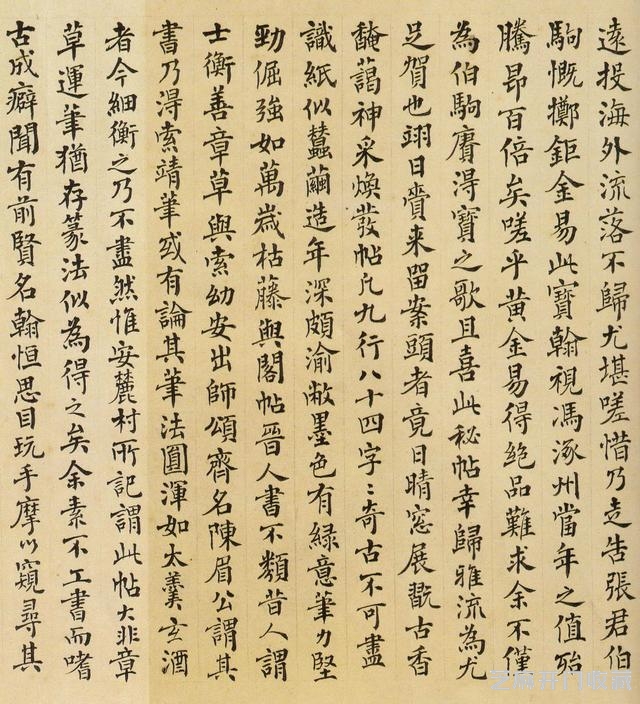 遠投海外流落不歸尤堪嗟惜乃走告張君伯
駒慨擲鉅金易此寶翰視馮涿州當年之值殆
騰昂百倍矣嗟乎黃金易得絕品難求余不僅
為伯駒賡得寶之歌且喜此秘帖幸歸雅流為尤
足賀也翊日賫来留案頭者竟日晴窓展翫古香
馣藹神采煥發帖凡九行八十四字〻奇古不可盡
識紙似蠶繭造年深頗渝敝墨色有緑意筆力堅
勁倔強如萬歲枯藤與閣帖晉人書不類昔人謂
士衡善章草與索幼安出師頌齊名陳眉公謂其
書乃淂索靖筆或有論其筆法圓渾如太羹玄酒
者今細衡之乃不盡然惟安麓村所記謂此帖大非章
草運筆猶存篆法似為得之矣余素不工書而嗜
古成癖聞有前賢名翰恒思目玩手摩以窺尋其